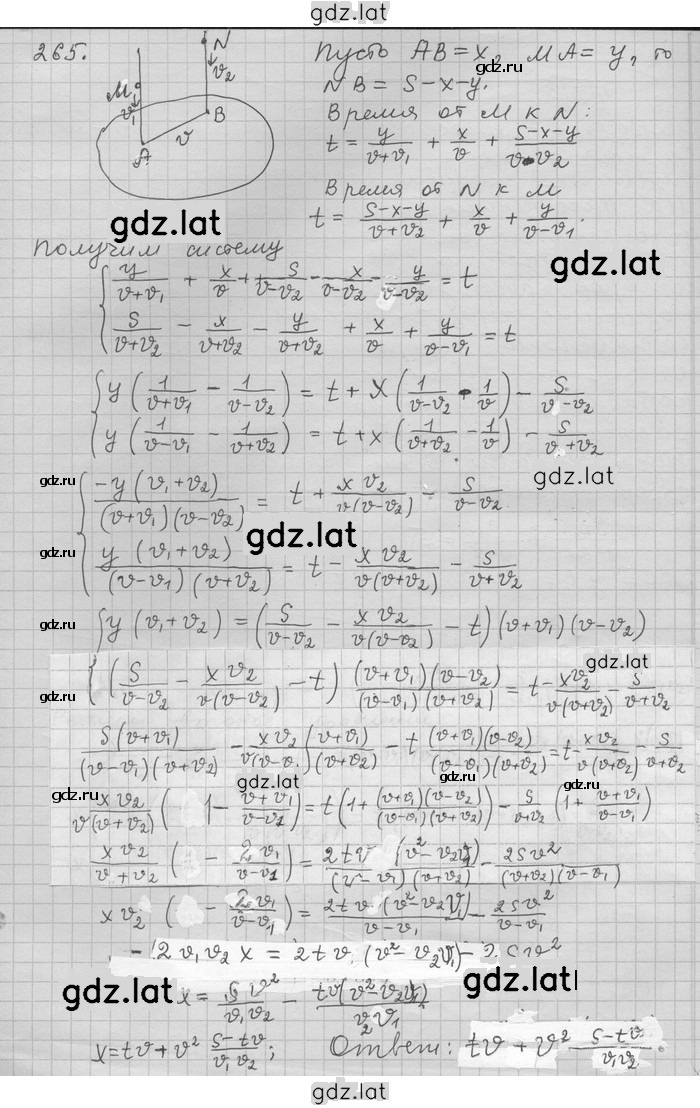 gdz.lat
265.
N
v₂
M
v₁
B
v
A
Пусть AB = x, MA = y, то
NB = S-x-y.
Время от M к N:
t = y/(v+v₁) + x/v + (S-x-y)/(v-v₂)
Время от N к M
t = (S-x-y)/(v+v₂) + x/v + y/(v-v₁).
gdz.ru
gdz.ru
gdz.ru
gdz.ru
gdz.lat
gdz.lat
Получим систему
{ y/(v+v₁) + x/v + S/(v-v₂) - x/(v-v₂) - y/(v-v₂) = t
S/(v+v₂) - x/(v+v₂) - y/(v+v₂) + x/v + y/(v-v₁) = t
{ y(1/(v+v₁) - 1/(v-v₂)) = t + x(1/(v-v₂) - 1/v) - S/(v-v₂)
y(1/(v-v₁) - 1/(v+v₂)) = t + x(1/(v+v₂) - 1/v) - S/(v+v₂)
gdz.ru
gdz.lat
{ -y(v₁+v₂)/((v+v₁)(v-v₂)) = t + xv₂/(v(v-v₂)) - S/(v-v₂)
gdz.lat
gdz.ru
y(v₁+v₂)/((v-v₁)(v+v₂)) = t - xv₂/(v(v+v₂)) - S/(v+v₂)
gdz.ru
{ y(v₁+v₂) = (S/(v-v₂) - xv₂/(v(v-v₂)) - t)(v+v₁)(v-v₂)
gdz.lat
gdz.ru
(S/(v-v₂) - xv₂/(v(v-v₂)) - t) (v+v₁)(v-v₂)/((v-v₁)(v+v₂)) = t - xv₂/(v(v+v₂)) - S/(v+v₂)
S(v+v₁)/((v-v₁)(v+v₂)) - xv₂(v+v₁)/(v(v-v₁)(v+v₂)) - t (v+v₁)(v-v₂)/((v-v₁)(v+v₂)) = t - xv₂/(v(v+v₂)) - S/(v+v₂)
gdz.lat
gdz.ru
gdz.ru
xv₂/(v(v+v₂)) (1 - (v+v₁)/(v-v₁)) = t(1 + (v+v₁)(v-v₂)/((v-v₁)(v+v₂))) - S/(v+v₂) (1 + (v+v₁)/(v-v₁))
xv₂/(v+v₂) ( - 2v₁/(v-v₁)) = 2tv (v²-v₂v₁)/((v-v₁)(v+v₂)) - 2Sv²/((v+v₂)(v-v₁))
gdz.lat
xv₂ ( - 2v₁/(v-v₁)) = 2tv (v²-v₂v₁)/(v-v₁) - 2Sv²/(v-v₁)
- 2v₁v₂x = 2tv (v²-v₂v₁) - 2Sv²
gdz.lat
gdz.lat
x = Sv²/(v₁v₂) - tv(v²-v₂v₁)/(v₂v₁)
x = tv + v² (S-tv)/(v₁v₂); Ответ: tv + v² (S-tv)/(v₁v₂).
gdz.lat